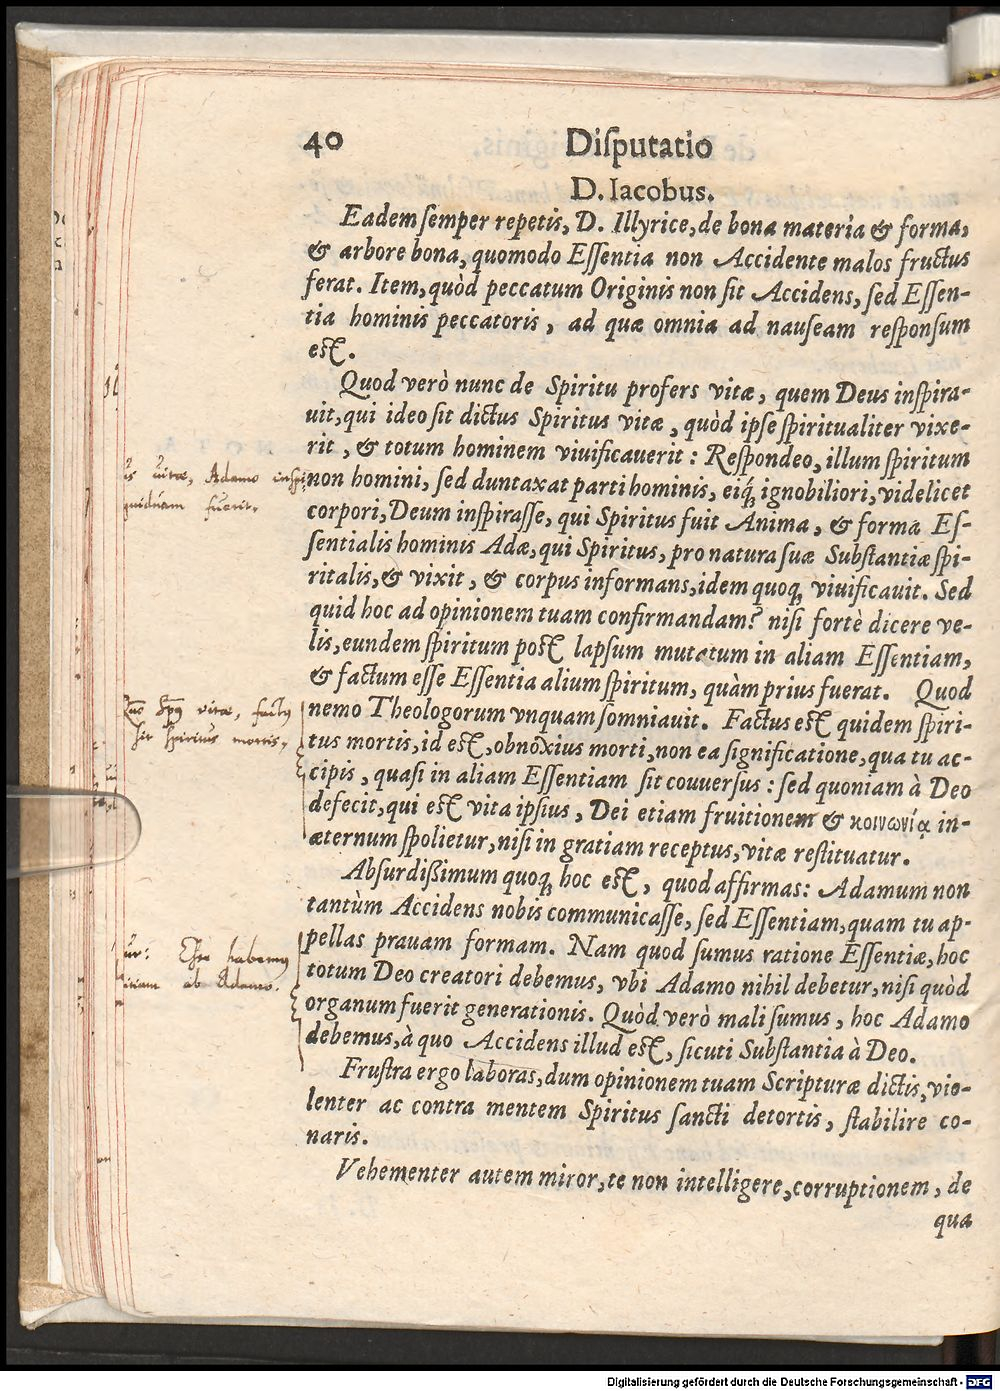 40 Diſputatio
D. Iacobus.
Eadem ſemper repetis, D. Illyrice, de bona materia & forma,
& arbore bona, quomodo Eſſentia non Accidente malos fructus
ferat. Item, quòd peccatum Originis non ſit Accidens, ſed Eſſen-
tia hominis peccatoris, ad quæ omnia ad nauſeam reſponſum
eſt.
Quod verò nunc de Spiritu profers vitæ, quem Deus inſpira-
uit, qui ideo ſit dictus Spiritus vitæ, quòd ipſe ſpiritualiter vixe-
rit, & totum hominem viuificauerit: Reſpondeo, illum ſpiritum
non homini, ſed duntaxat parti hominis, eiq́; ignobiliori, videlicet
corpori, Deum inſpiraſſe, qui Spiritus fuit Anima, & forma Eſ-
ſentialis hominis Adæ, qui Spiritus, pro natura ſuæ Subſtantiæ ſpi-
ritalis, & vixit, & corpus informans, idem quoq; viuificauit. Sed
quid hoc ad opinionem tuam confirmandam? niſi fortè dicere ve-
lis, eundem ſpiritum poſt lapſum mutatum in aliam Eſſentiam,
& factum eſſe Eſſentia alium ſpiritum, quàm prius fuerat. Quod
nemo Theologorum vnquam ſomniauit. Factus eſt quidem ſpiri-
tus mortis, id eſt, obnoxius morti, non ea ſignificatione, qua tu ac-
cipis, quaſi in aliam Eſſentiam ſit couuerſus: ſed quoniam à Deo
defecit, qui eſt vita ipſius, Dei etiam fruitionem & κοινωνίᾳ in-
æternum ſpolietur, niſi in gratiam receptus, vitæ reſtituatur.
Abſurdißimum quoq; hoc eſt, quod affirmas: Adamum non
tantùm Accidens nobis communicaſſe, ſed Eſſentiam, quam tu ap-
pellas prauam formam. Nam quod ſumus ratione Eſſentiæ, hoc
totum Deo creatori debemus, vbi Adamo nihil debetur, niſi quòd
organum fuerit generationis. Quòd verò mali ſumus, hoc Adamo
debemus, à quo Accidens illud eſt, ſicuti Subſtantia à Deo.
Fruſtra ergo laboras, dum opinionem tuam Scripturæ dictis, vio-
lenter ac contra mentem Spiritus ſancti detortis, ſtabilire co-
naris.
Vehementer autem miror, te non intelligere, corruptionem, de
qua
vitæ, Adamo
fuerit.
vitæ, factus
ſit ſpiritus mortis.
habemus
ab Adamo.
Digitalisierung gefördert durch die Deutsche Forschungsgemeinschaft - DFG